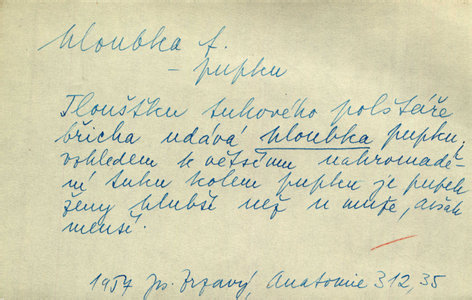 hloubka f.
– pupku
Tloušťku tukového polštáře
břicha udává hloubka pupku;
vzhledem k většímu nahromadě-
ní tuku kolem pupku je pupek
ženy hlubší než u muže, avšak
menší.
1957 Jos. Zrzavý, Anatomie 312, 35